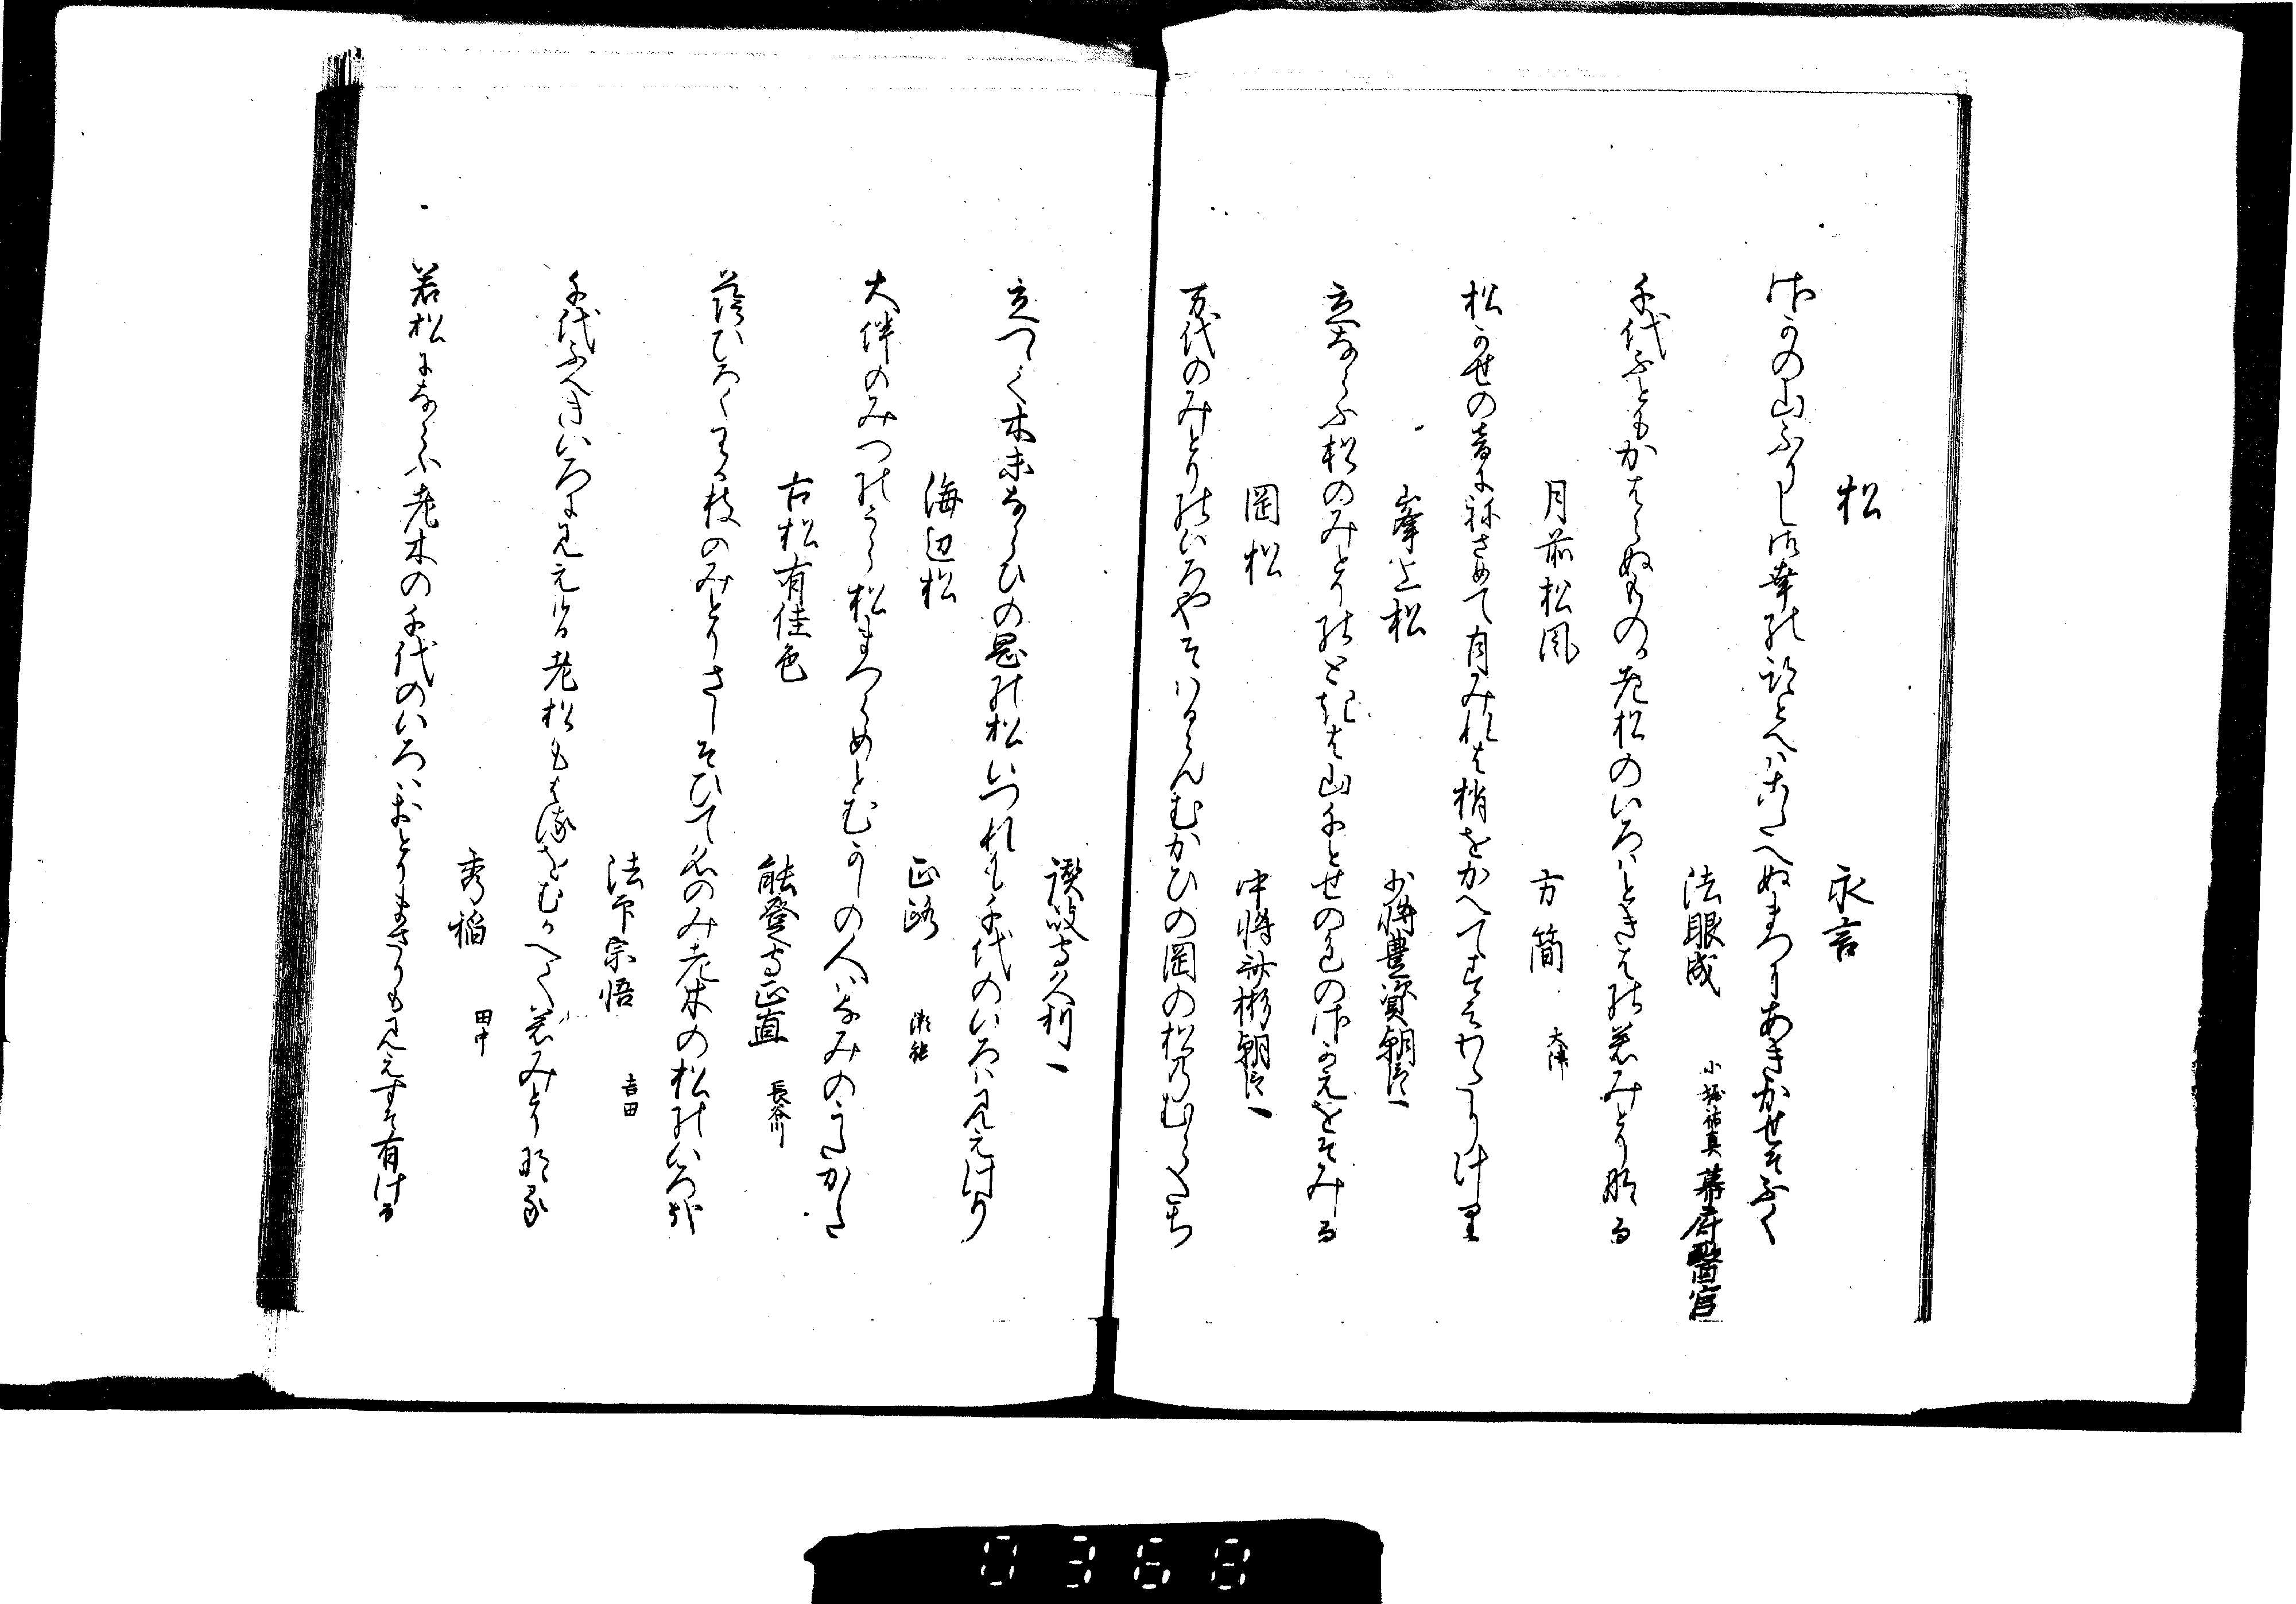 松　永言
みかの山ふりし御幸の跡とへはこたへぬまつにあきかせそふく
法眼成　小堀祐真　幕府醫官
千代ふともかはらぬものゝ老松のいろはときはの若みとり那る
月前松風　方簡　大津
松かせの音にねさめて月みれは梢をかへてすみわたり計里
峯上松　少将豊資朝臣
立ならふ松のみとりのときは山千とせの色のみかえをそみる
岡松　中将斉彬朝臣
万代のみとりのいろやそはるらんむかひの岡の松乃むらたち
讃岐守久利
立つゝく木末ならひの岡の松いつれも千代のいろは見えけり
海辺松　正路
大伴のみつのうら松まつらめとむかしの人はなみのうたかた
古松有佳色　能登守正直　長谷川
蔭ひろくなる枝のみとりさしそひて名のみ老木の松のいろ哉
法印宗悟　吉田
千代ふへきいろに見えける老松もはるをむかへて若みとり那る
秀稲　田中
若松にならふ老木の千代のいろはおとりまさりも見えすそ有ける
0368